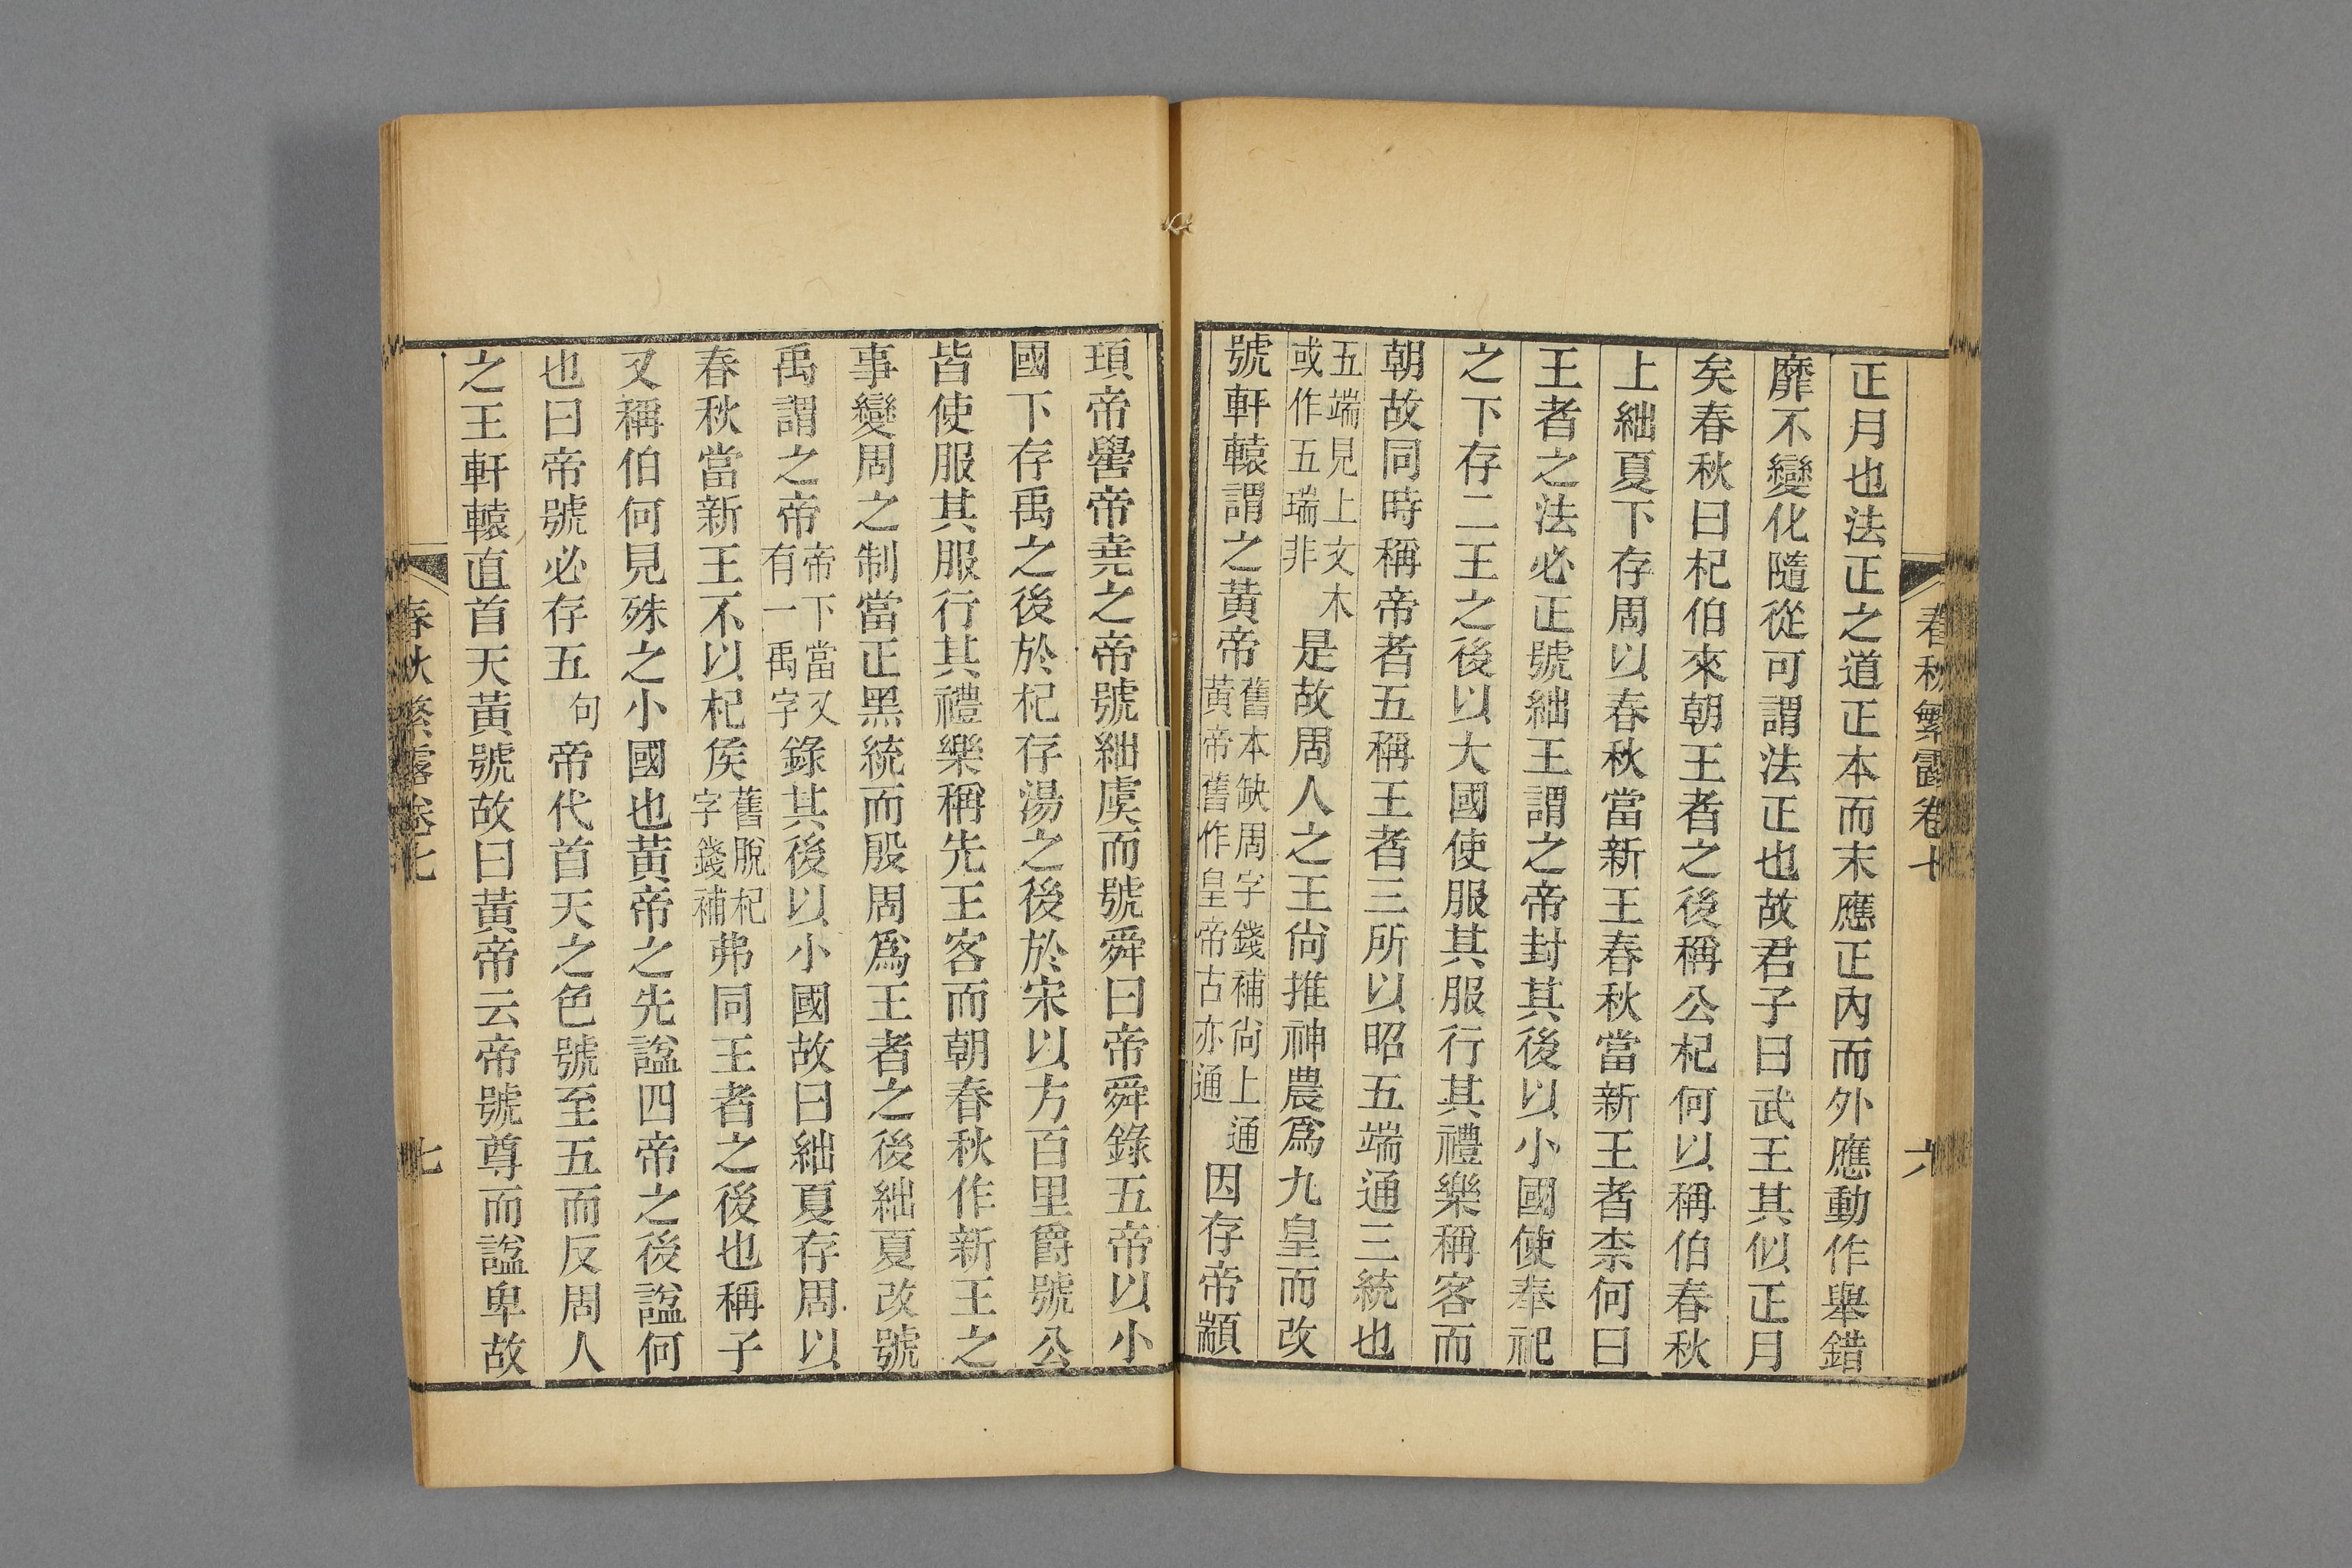 春秋繁露卷七
六
正月也法正之道正本而末應正內而外應動作舉錯
靡不變化隨從可謂法正也故君子曰武王其似正月
矣春秋曰杞伯來朝王者之後稱公杞何以稱伯春秋
上絀夏下存周以春秋當新王春秋當新王者柰何曰
王者之法必正號絀王謂之帝封其後以小國使奉祀
之下存二王之後以大國使服其服行其禮樂稱客而
朝故同時稱帝者五稱王者三所以昭五端通三統也
五端見上文本或作五瑞非是故周人之王尙推神農爲九皇而改
號軒轅謂之黃帝舊本缺周字錢補尙上通黃帝舊作皇帝古亦通因存帝顓
頊帝嚳帝堯之帝號絀虞而號舜曰帝舜錄五帝以小
國下存禹之後於杞存湯之後於宋以方百里爵號公
皆使服其服行其禮樂稱先王客而朝春秋作新王之
事變周之制當正黑統而殷周爲王者之後絀夏改號
禹謂之帝帝下當又有一禹字錄其後以小國故曰絀夏存周以
春秋當新王不以杞矦舊脫杞字錢補弗同王者之後也稱子
又稱伯何見殊之小國也黃帝之先謚四帝之後謚何
也曰帝號必存五句帝代首天之色號至五而反周人
之王軒轅直首天黃號故曰黃帝云帝號尊而謚卑故
春秋繁露卷七
七